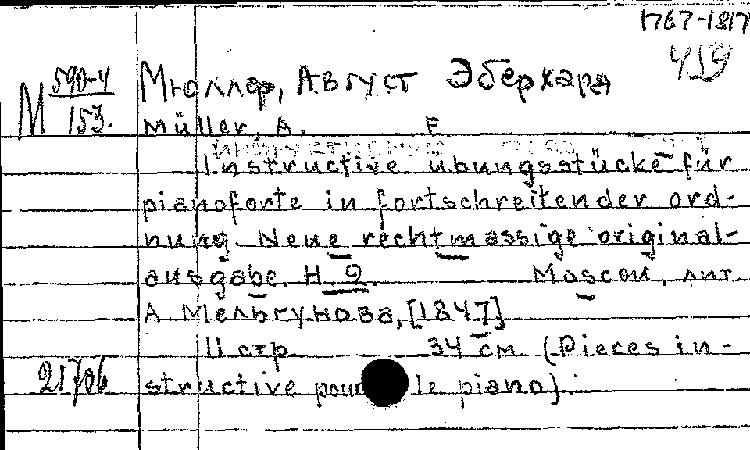 1767-1817
459
М 590-4/153.
Мюллер, Август Эберхард
Müller, A. E
Instructive übungsstücke für
pianoforte in fortschreitender ord-
nung. Neue rechtmässige original-
ausgabe. H. 9. Moscou, лит.
А Мельгунова, [1847]
11 стр. 34 см. (Pieces in-
21706 structive pour le piano).